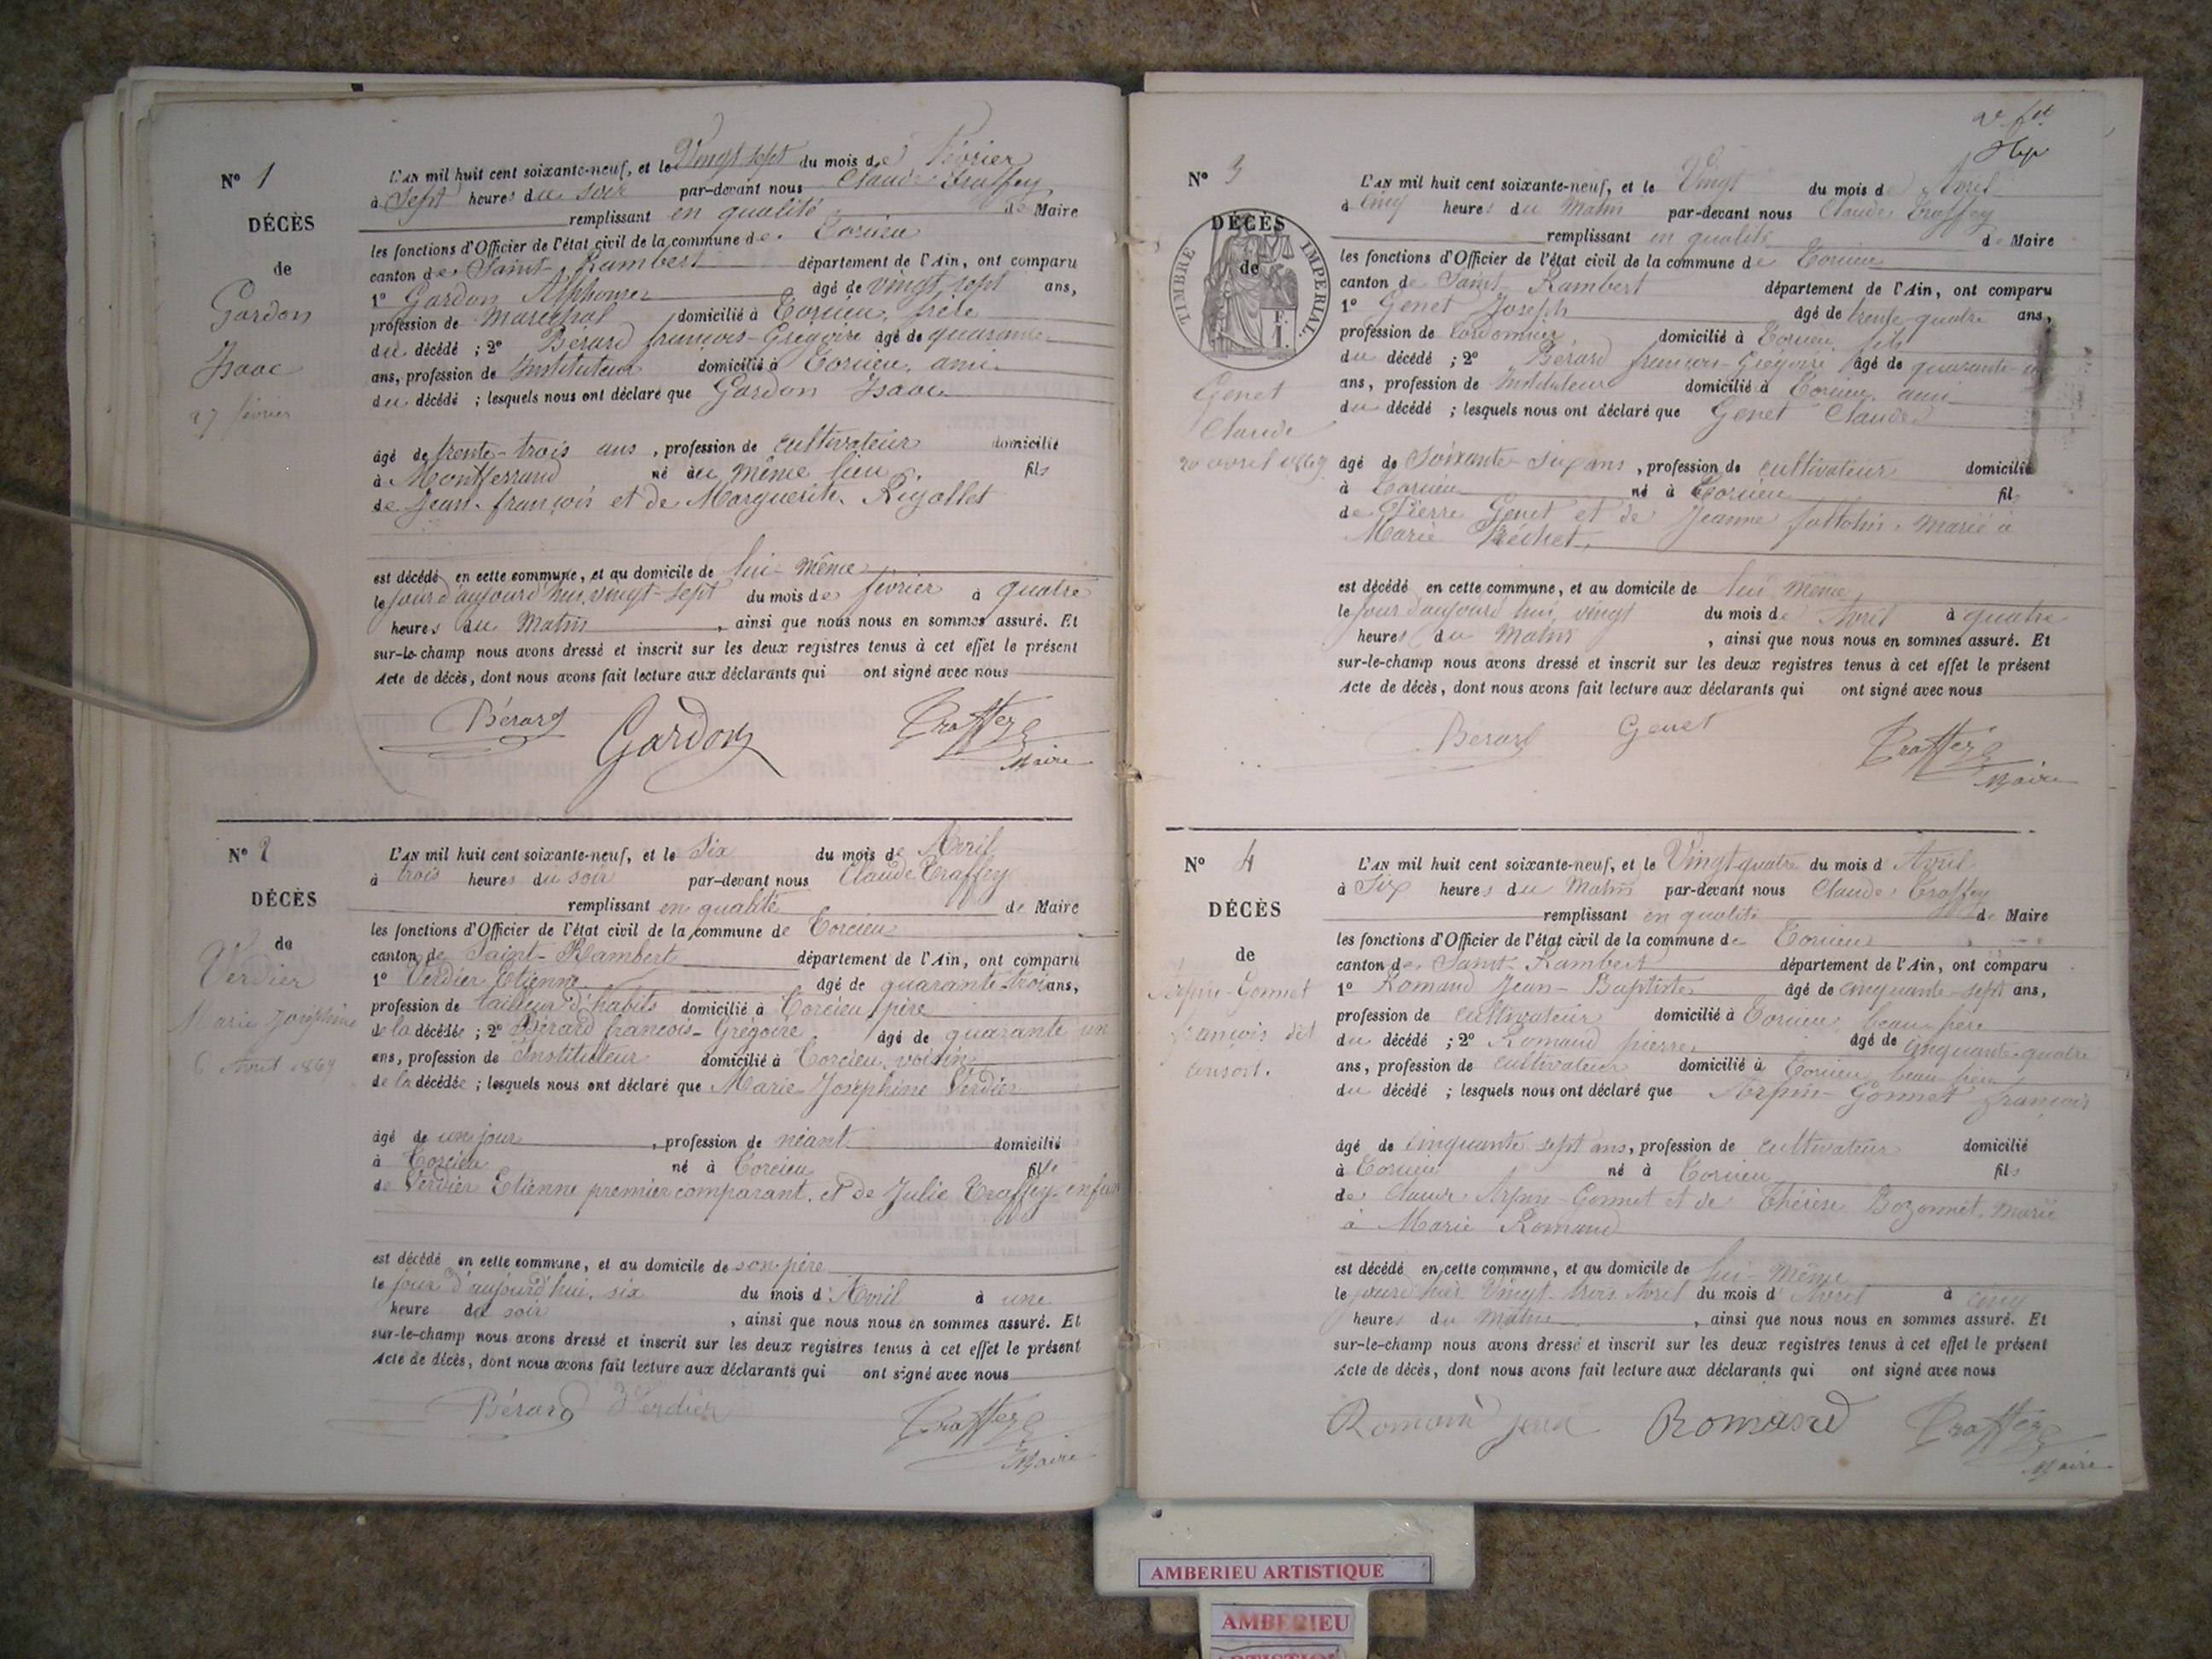 N° 1
DÉCÈS
de
Gardon
Isaac
27 février
L'AN mil huit cent soixante-neuf, et le Vingt sept du mois de Février
à Sept heures du soir par-devant nous Claude Traffey
remplissant en qualité de Maire
les fonctions d'Officier de l'état civil de la commune de Torcieu
canton de Saint-Rambert département de l'Ain, ont comparu
1° Gardon Alphonse âgé de vingt sept ans,
profession de Maréchal domicilié à Torcieu, frère
du décédé ; 2° Bérard françois-Grégoire âgé de quarante
ans, profession de Instituteur domicilié à Torcieu, ami
du décédé ; lesquels nous ont déclaré que Gardon Isaac
âgé de trente-trois ans, profession de cultivateur domicilié
à Montferrand né au même lieu fils
de Jean-françois et de Marguerite Rigollet
est décédé en cette commune, et au domicile de lui-même
le jour d'aujourd'hui, vingt-sept du mois de février à quatre
heures du Matin, ainsi que nous nous en sommes assuré. Et
sur-le-champ nous avons dressé et inscrit sur les deux registres tenus à cet effet le présent
Acte de décès, dont nous avons fait lecture aux déclarants qui ont signé avec nous
Bérard Gardon Traffey
Maire
N° 2
DÉCÈS
de
Verdier
Marie Joséphine
6 Avril 1869
L'AN mil huit cent soixante-neuf, et le Six du mois de Avril
à trois heures du soir par-devant nous Claude Traffey
remplissant en qualité de Maire
les fonctions d'Officier de l'état civil de la commune de Torcieu
canton de Saint-Rambert département de l'Ain, ont comparu
1° Verdier Etienne âgé de quarante-trois ans,
profession de tailleur d'habits domicilié à Torcieu, père
de la décédée ; 2° Bérard francois-Grégoire âgé de quarante un
ans, profession de Instituteur domicilié à Torcieu, voisin
de la décédée ; lesquels nous ont déclaré que Marie Joséphine Verdier
âgé de un jour, profession de néant domicilié
à Torcieu né à Torcieu fille
de Verdier Etienne premier comparant, et de Julie Traffey
est décédé en cette commune, et au domicile de son père
le jour d'aujourd'hui, six du mois d'Avril à une
heure du soir, ainsi que nous nous en sommes assuré. Et
sur-le-champ nous avons dressé et inscrit sur les deux registres tenus à cet effet le présent
Acte de décès, dont nous avons fait lecture aux déclarants qui ont signé avec nous
Bérard Verdier Traffey
Maire
N° 3
DÉCÈS
de
TIMBRE IMPÉRIAL
F.
1.
Genet
Claude
20 avril 1869
L'AN mil huit cent soixante-neuf, et le Vingt du mois de Avril
à Cinq heures du Matin par-devant nous Claude Traffey
remplissant en qualité de Maire
les fonctions d'Officier de l'état civil de la commune de Torcieu
canton de Saint Rambert département de l'Ain, ont comparu
1° Genet Joseph âgé de trente quatre ans,
profession de Cordonnier domicilié à Torcieu, fils
du décédé ; 2° Bérard françois-Grégoire âgé de quarante-un
ans, profession de Instituteur domicilié à Torcieu, ami
du décédé ; lesquels nous ont déclaré que Genet Claude
âgé de Soixante-six ans, profession de cultivateur domicilié
à Torcieu né à Torcieu fils
de Pierre Genet et de Jeanne, marié à
Marie
est décédé en cette commune, et au domicile de lui même
le jour d'aujourd'hui, vingt du mois de Avril à quatre
heures du Matin, ainsi que nous nous en sommes assuré. Et
sur-le-champ nous avons dressé et inscrit sur les deux registres tenus à cet effet le présent
Acte de décès, dont nous avons fait lecture aux déclarants qui ont signé avec nous
Bérard Genet Traffey
Maire
N° 4
DÉCÈS
de
Arpin-Gonnet
françois dit
L'AN mil huit cent soixante-neuf, et le Vingt quatre du mois d Avril
à Six heures du Matin par-devant nous Claude Traffey
remplissant en qualité de Maire
les fonctions d'Officier de l'état civil de la commune de Torcieu
canton de Saint-Rambert département de l'Ain, ont comparu
1° Romand Jean-Baptiste âgé de cinquante-sept ans,
profession de cultivateur domicilié à Torcieu, beau frère
du décédé ; 2° Romand pierre âgé de cinquante-quatre
ans, profession de cultivateur domicilié à Torcieu, beau frère
du décédé ; lesquels nous ont déclaré que Arpin-Gonnet françois
âgé de Cinquante sept ans, profession de cultivateur domicilié
à Torcieu né à Torcieu fils
de Claude Arpin-Gonnet et de Thérèse Bozonnet, marié
à Marie Romand
est décédé en cette commune, et au domicile de lui-même
le jour d'hier Vingt-trois Avril du mois d'Avril à cinq
heures du matin, ainsi que nous nous en sommes assuré. Et
sur-le-champ nous avons dressé et inscrit sur les deux registres tenus à cet effet le présent
Acte de décès, dont nous avons fait lecture aux déclarants qui ont signé avec nous
Romand jean Romand Traffey
Maire
AMBERIEU ARTISTIQUE
AMBERIEU
ARTISTIQUE